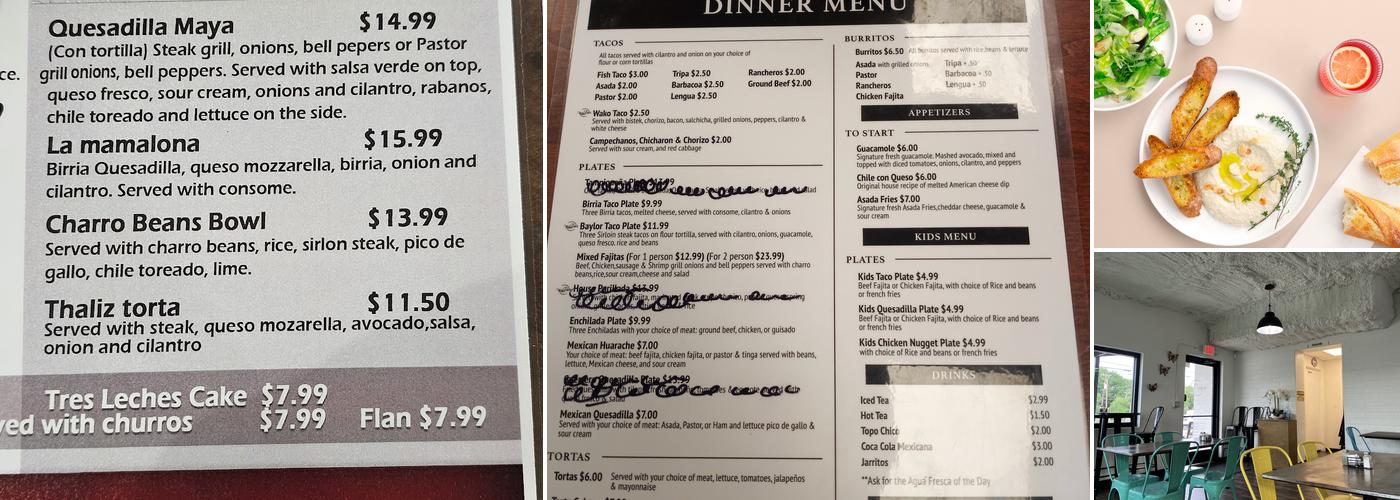 Quesadilla Maya $14.99
(Con tortilla) Steak grill, onions, bell pepers or Pastor
grill onions, bell peppers. Served with salsa verde on top,
queso fresco, sour cream, onions and cilantro, rabanos,
chile toreado and lettuce on the side.
La mamalona $15.99
Birria Quesadilla, queso mozzarella, birria, onion and
cilantro. Served with consome.
Charro Beans Bowl $13.99
Served with charro beans, rice, sirlon steak, pico de
gallo, chile toreado, lime.
Thaliz torta $11.50
Served with steak, queso mozarella, avocado,salsa,
onion and cilantro
Tres Leches Cake $7.99
with churros $7.99 Flan $7.99
DINNER MENU
TACOS
All tacos served with cilantro and onion on your choice of
flour or corn tortillas
Fish Taco $3.00 Tripa $2.50 Rancheros $2.00
Asada $2.00 Barbacoa $2.50 Ground Beef $2.00
Pastor $2.00 Lengua $2.50
Wako Taco $2.50
Served with bistek, chorizo, bacon, salchicha, grilled onions, peppers, cilantro &
white cheese
Campechanos, Chicharon & Chorizo $2.00
Served with sour cream, and red cabbage
PLATES
Birria Taco Plate $9.99
Three Birria tacos, melted cheese, served with consome, cilantro & onions
Baylor Taco Plate $11.99
Three Sirloin steak tacos on flour tortilla, served with cilantro, onions, guacamole,
queso fresco. rice and beans
Mixed Fajitas (For 1 person $12.99) (For 2 person $23.99)
Beef, Chicken,sausage & Shrimp grill onions and bell peppers served with charro
beans,rice,sour cream,cheese and salad
House Parillada $13.99
Enchilada Plate $9.99
Three Enchiladas with your choice of meat: ground beef, chicken, or guisado
Mexican Huarache $7.00
Your choice of meat: beef fajita, chicken fajita, or pastor & tinga served with beans,
lettuce, Mexican cheese, and sour cream
Quesadilla Plate $13.99
Mexican Quesadilla $7.00
Served with your choice of meat: Asada, Pastor, or Ham and lettuce pico de gallo &
sour cream
TORTAS
Tortas $6.00 Served with your choice of meat, lettuce, tomatoes, jalapeños
& mayonnaise
BURRITOS
Burritos $6.50 All burritos served with rice,beans & lettuce
Asada with grilled onions Tripa + .50
Pastor Barbacoa + .50
Rancheros Lengua + .50
Chicken Fajita
APPETIZERS
TO START
Guacamole $6.00
Signature fresh guacamole. Mashed avocado, mixed and
topped with diced tomatoes, onions, cilantro, and peppers
Chile con Queso $6.00
Original house recipe of melted American cheese dip
Asada Fries $7.00
Signature fresh Asada Fries,cheddar cheese, guacamole &
sour cream
KIDS MENU
PLATES
Kids Taco Plate $4.99
Beef Fajita or Chicken Fajita, with choice of Rice and beans
or french fries
Kids Quesadilla Plate $4.99
Beef Fajita or Chicken Fajita, with choice of Rice and beans
or french fries
Kids Chicken Nugget Plate $4.99
with choice of Rice and beans or french fries
DRINKS
Iced Tea $2.99
Hot Tea $1.50
Topo Chico $2.00
Coca Cola Mexicana $3.00
Jarritos $2.00
**Ask for the Agua Fresca of the Day